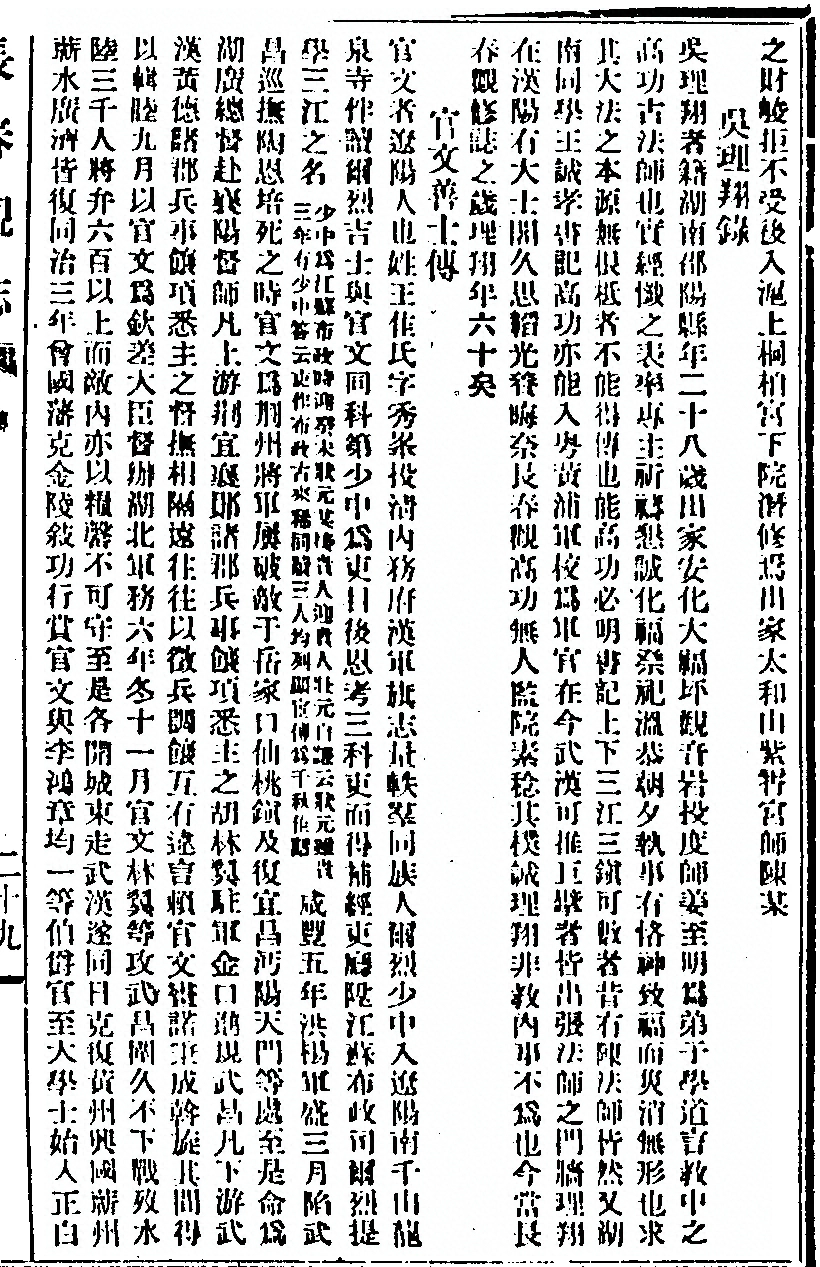 之財峻拒不受後入滬上桐柏宮下院潛修焉出家太和山紫霄宮師陳某
吳理翔錄
吳理翔者籍湖南邵陽縣年二十八歲出家安化大輻坪觀音岩投度師姜至明爲弟子學道言教中之
高功古法師也實經懺之表率專主祈禱懇誠化福祭祀溫恭朝夕執事有恪神致福而災消無形也求
其大法之本源無根柢者不能得傳也能高功必明書記上下三江三鎮可數者昔有陳法師皆然又湖
南同學王誠孝書記高功亦能入粵黃浦軍校爲軍官在今武漢可推巨擘者皆出張法師之門牆理翔
在漢陽石大士閣久思韜光養晦奈長春觀高功無人監院素稔其樸誠理翔非教內事不爲也今當長
春觀修誌之歲理翔年六十矣
官文善士傳
官文者遼陽人也姓王佳氏字秀泉投清內務府漢軍旗志量軼羣同族人爾烈少中入遼陽南千山龍
泉寺伴讀爾烈吉士與官文同科第少中爲吏目後思考三科吏而得補經吏廳陞江蘇布政司爾烈提
學三江之名 少中爲江蘇布政時鴻發宋狀元某憐貴人迎貴人狀元自謙云狀元雖貴
三年有少中答云吏作布政古來稀同硯三人均列顯官傳爲千秋佳話 咸豐五年洪楊軍盛三月陷武
昌巡撫陶恩培死之時官文爲荆州將軍屢破敵于岳家口仙桃鎮及復宜昌沔陽天門等處至是命爲
湖廣總督赴襄陽督師凡上游荆宜襄鄖諸郡兵事餉項悉主之胡林翼駐軍金口進規武昌凡下游武
漢黃德諸郡兵事餉項悉主之督撫相隔遠往往以徵兵調餉互有違言賴官文畫諾玉成斡旋其間得
以輯睦九月以官文爲欽差大臣督辦湖北軍務六年冬十一月官文林翼等攻武昌圍久不下戰歿水
陸三千人將弁六百以上而敵內亦以糧罄不可守至是各開城東走武漢遂同日克復黃州興國蘄州
蘄水廣濟皆復同治三年曾國藩克金陵敍功行賞官文與李鴻章均一等伯爵官至大學士始人正白
長春觀志 傳 二十九